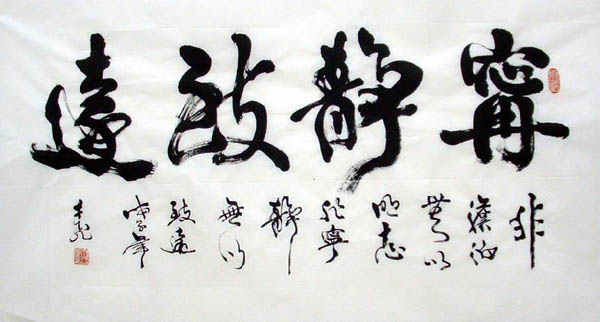 寧靜致遠
非
澹泊
無以
明志
非寧
靜
無以
致遠